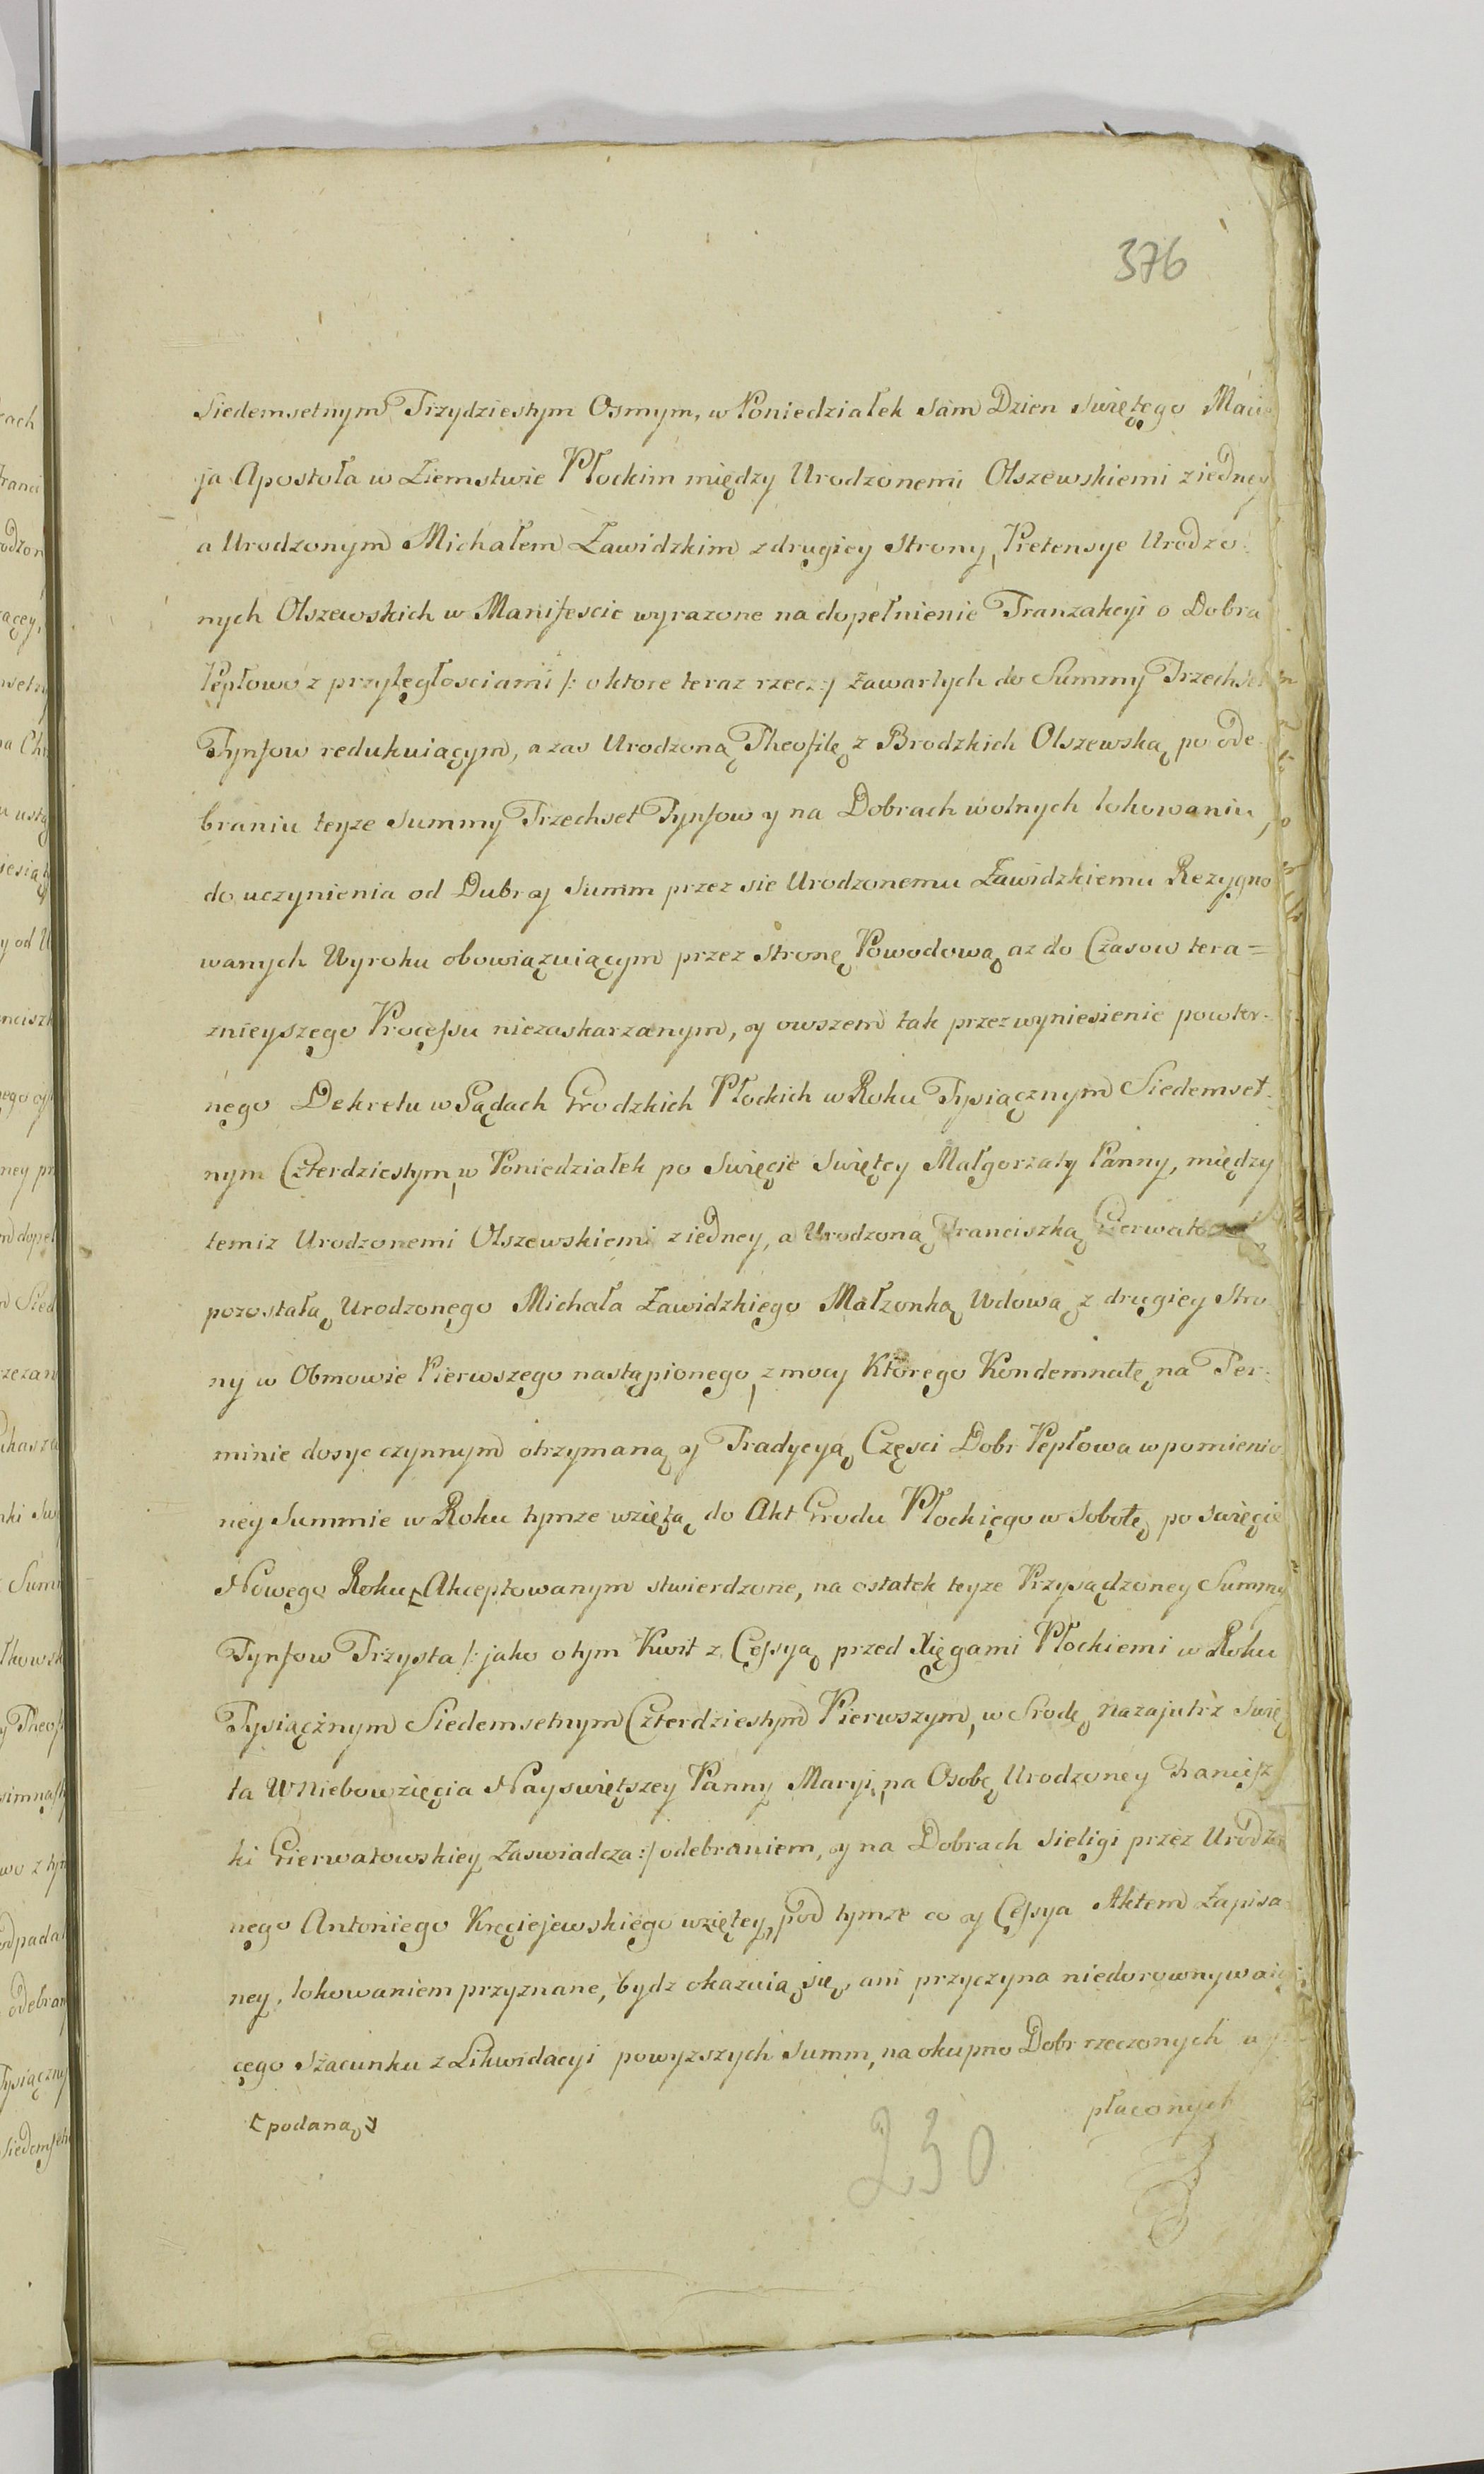 376
Siedemsetnym Trzydziestym Osmym, w Poniedziałek sam Dzien Swiętego Macie
ja Apostoła w Ziemstwie Płockim między Urodzonemi Olszewskiemi z iedney
a Urodzonym Michałem Zawidzkim z drugiey strony, Pretensye Urodzo:
nych Olszewskich w Manifescie wyrazone na dopełnienie Tranzakcyi o Dobra
Pepłowo z przyległosciami /: o ktore teraz rzecz :/ zawartych do Summy Trzechset
Tynfow redukuiącym, a zas Urodzoną Theofilę z Brodzkich Olszewską po ode
braniu teyze Summy Trzechset Tynfow y na Dobrach wolnych lokowaniu,
do uczynienia od Dubr y Summ przez sie Urodzonemu Zawidzkiemu Rezygno
wanych Wyroku obowiązuiącym przez stronę Powodową az do Czasow tera=
znieyszego Processu niezaskarzanym, y owszem tak przez wyniesienie powtor:
nego Dekretu w Sądach Grodzkich Płockich w Roku Tysiącznym Siedemset:
nym Czterdziestym, w Poniedziałek po Swięcie Swiętey Małgorzaty Panny, między
temiz Urodzonemi Olszewskiemi z iedney, a Urodzoną Franciszką
pozostałą Urodzonego Michała Zawidzkiego Małzonką Wdową z drugiey Stro
ny w Obmowie Pierwszego nastąpionego, z mocy Ktorego Kondemnatę na Ter:
minie dosyc czynnym otrzymaną y Tradycyą Częsci Dobr Pepłowa w pomienio
ney Summie w Roku tymze wziętą do Akt Grodu Płockiego w Sobotę po swięcie
Nowego Roku [ Akceptowanym stwierdzone, na ostatek teyze Przysądzoney Summy
Tynfow Trzysta /: jako o tym Kwit z Cessyą przed Xięgami Płockiemi w Roku
Tysiącznym Siedemsetnym Czterdziestym Pierwszym, w Srodę nazajutrz Swię
ta Wniebowzięcia Nayswiętszey Panny Maryi, na Osobę Urodzoney Francisz
ki Gierwatowskiey Zaswiadcza :/ odebraniem, y na Dobrach Sieligi przez Urodzo
nego Antoniego Kręciejewskiego wziętey, pod tymze co y Cessya Aktem Zapisa
ney, lokowaniem przyznane, bydz okazuią się, ani przyczyna niedorownywaią
cego Szacunku z Likwidacyi powyzszych Summ, na okupno Dobr rzeczonych wy
[ podaną ]
płaconych
230